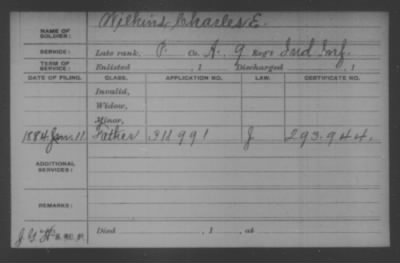 NAME OF SOLDIER: Wilkins, Charles E.
SERVICE: Late rank, P. Co. A, 9 Reg't Ind Inf.
TERM OF SERVICE: Enlisted , 1 Discharged , 1
DATE OF FILING. CLASS. APPLICATION NO. LAW. CERTIFICATE NO.
Invalid,
Widow,
Minor,
1884 Jan. 11. Father 311991 J 293.944.
ADDITIONAL SERVICES:
REMARKS:
Died , 1 , at